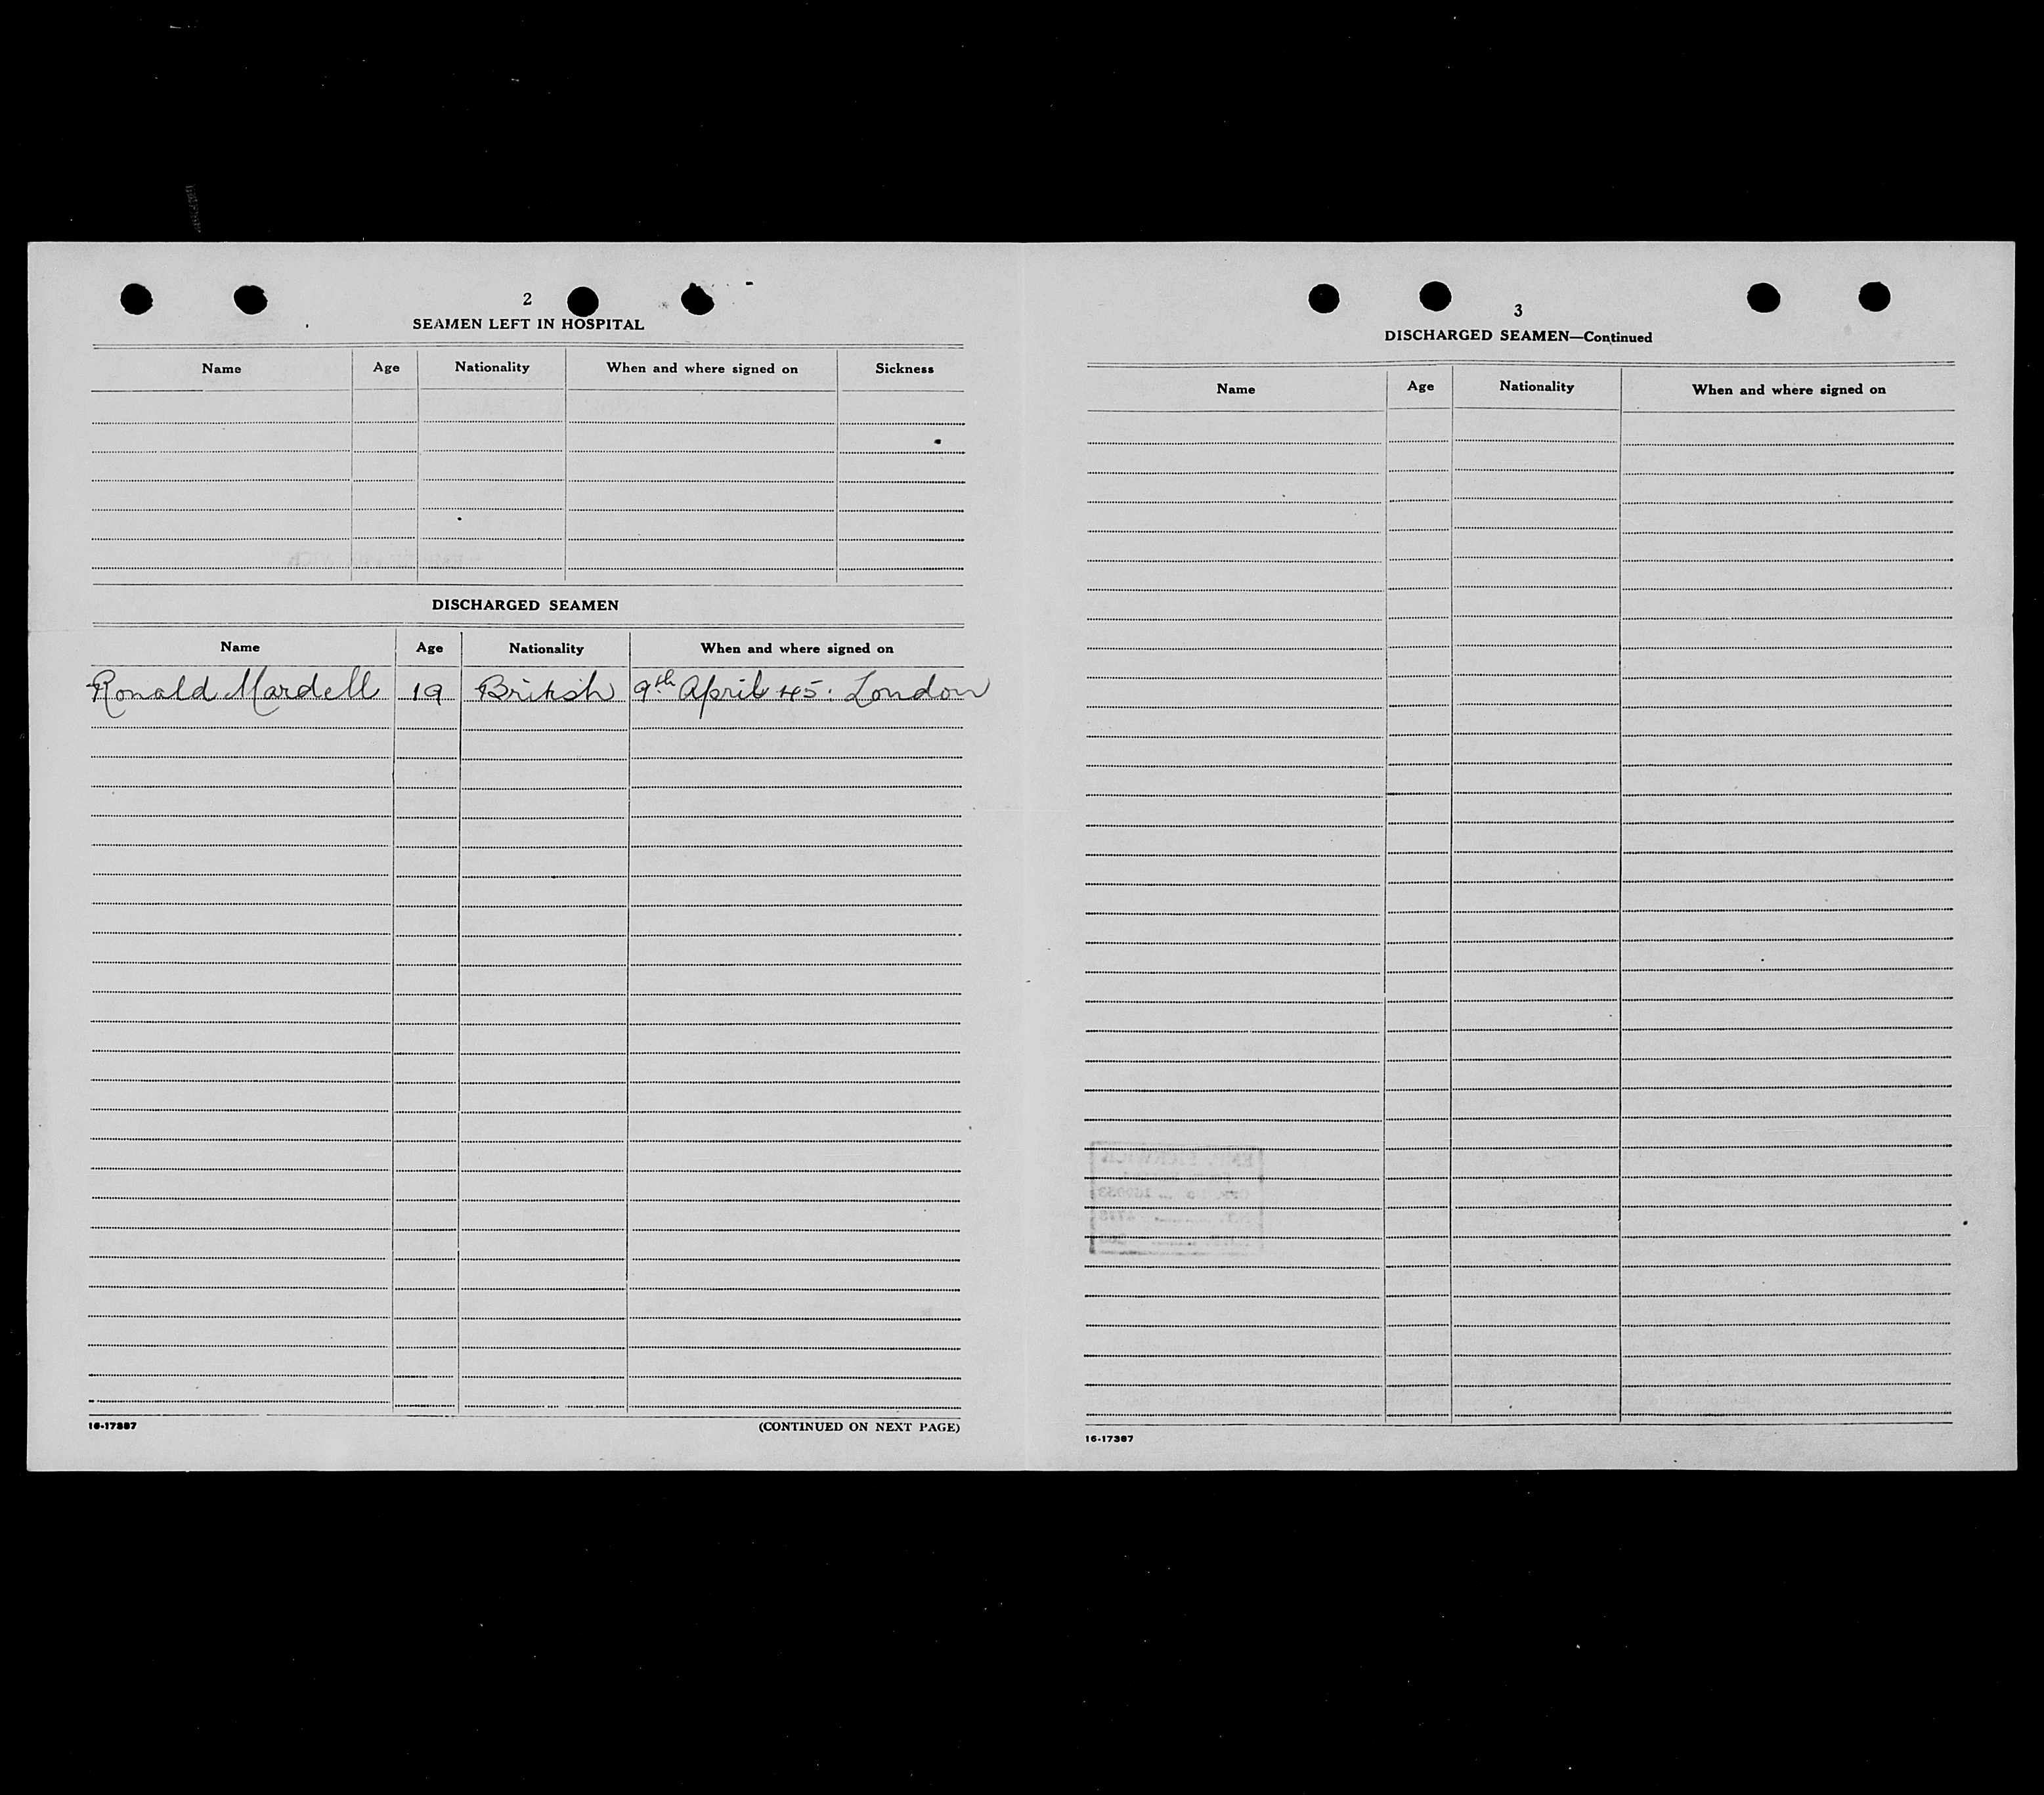 2
SEAMEN LEFT IN HOSPITAL
Name Age Nationality When and where signed on Sickness
DISCHARGED SEAMEN
Name Age Nationality When and where signed on
Ronald Mardell 19 British 9th April 45. London
16-17387 (CONTINUED ON NEXT PAGE)
3
DISCHARGED SEAMEN—Continued
Name Age Nationality When and where signed on
16-17387